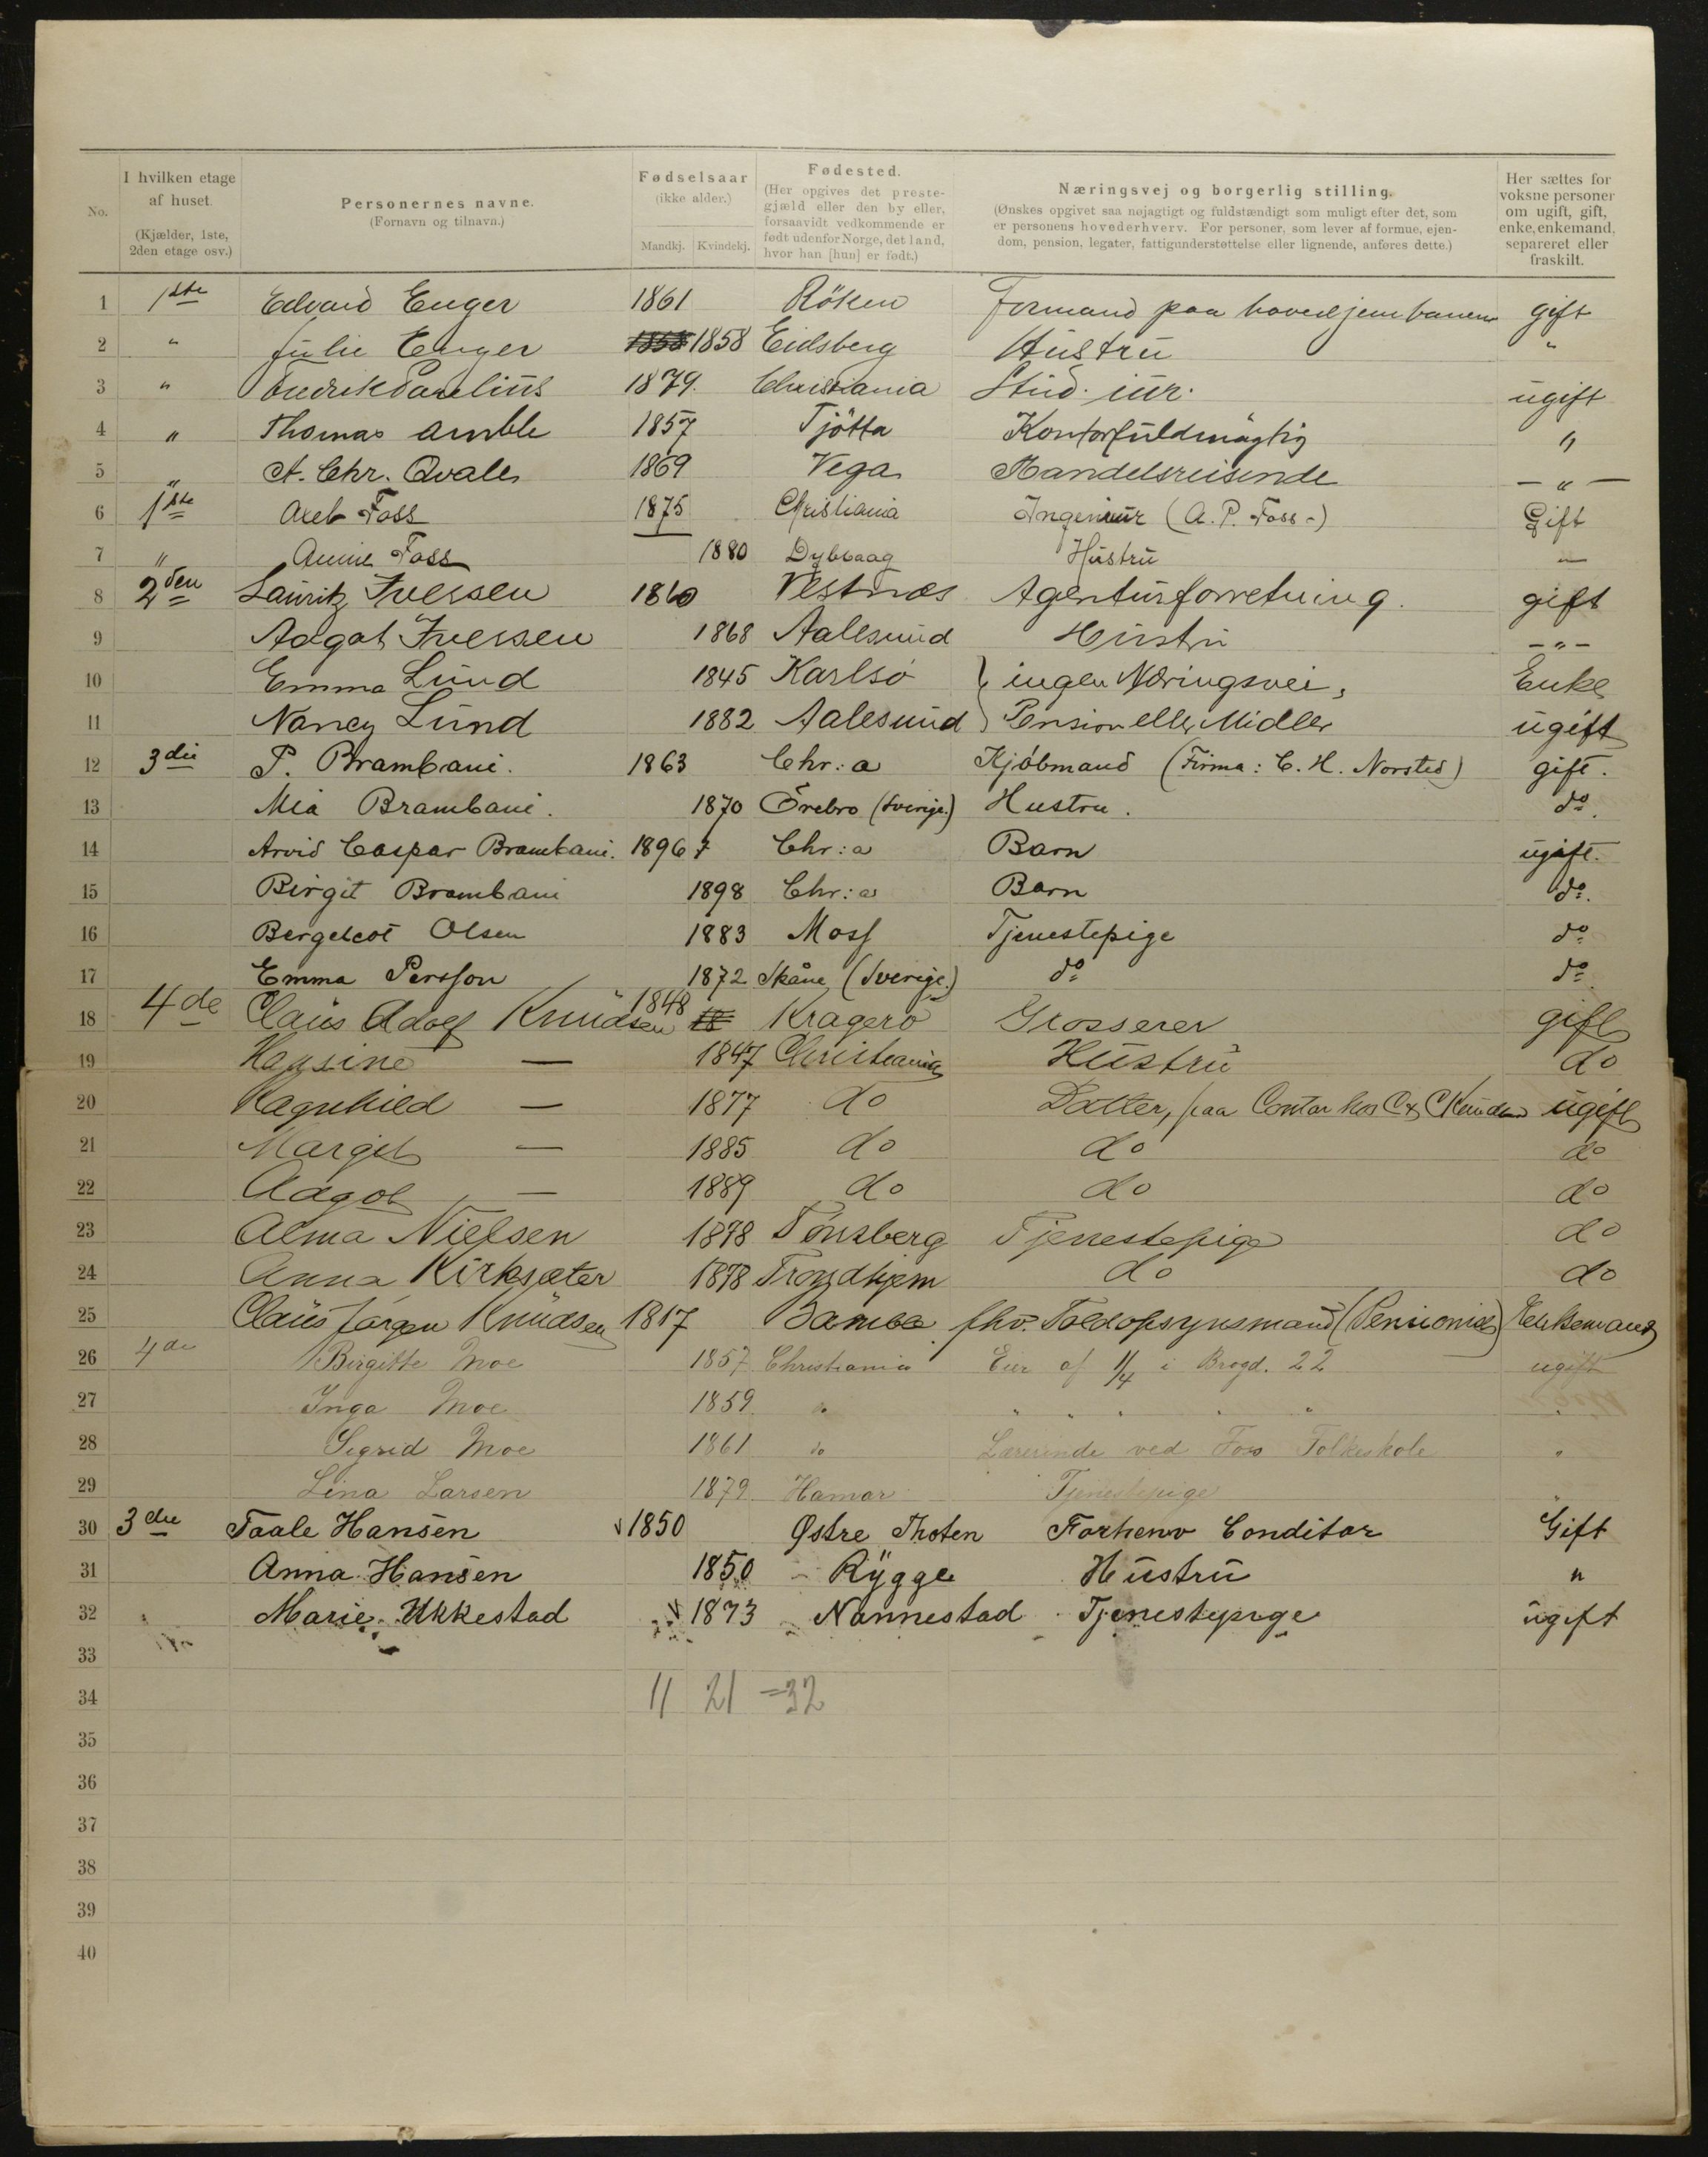 No. | I hvilken etage af huset. (Kjælder, 1ste, 2den etage osv.) | Personernes navne. (Fornavn og tilnavn.) | Fødselsaar (ikke alder.) Mandkj. Kvindekj. | Fødested. (Her opgives det prestegjæld eller den by eller, forsaavidt vedkommende er født udenfor Norge, det land, hvor han [hun] er født.) | Næringsvej og borgerlig stilling. (Ønskes opgivet saa nøjagtigt og fuldstændigt som muligt efter det, som er personens hovederhverv. For personer, som lever af formue, ejendom, pension, legater, fattigunderstøttelse eller lignende, anføres dette.) | Her sættes for voksne personer om ugift, gift, enke, enkemand, separeret eller fraskilt.
1 1ste Edvard Enger 1861 Röken Formand paa hovedjernbanen gift
2 " Julie Enger 1858 Eidsberg Hustru "
3 " Fredrik Paulius 1879. Christiania Stud. iur. ugift
4 " Thomas Amble 1857 Tjötta Kontorfuldmägtig "
5 " A. Chr. Qvale 1869 Vega Handelsreisende — " —
6 1ste Axel Foss 1875 Christiania Ingeniør (A. P. Foss-) Gift
7 " Annie Foss 1880 Dybvaag Hustru —
8 2den Lauritz Iversen 1860 Vestnæs Agenturforretning. gift
9 Aagot Iversen 1868 Aalesund Hustru - " -
10 Emma Lund 1845 Karlsø } ingen Næringsvei, Enke
11 Nancy Lund 1882 Aalesund } Pension eller Midler ugift
12 3die P. Brambani. 1863 Chr:a Kjöbmand (Firma: C. H. Norsted) gift.
13 Mia Brambani. 1870 Örebro (Sverige.) Hustru. do.
14 Arvid Caspar Brambani. 1896 Chr:a Barn ugift.
15 Birgit Brambani 1898 Chr:a Barn do.
16 Bergelcot Olsen 1883 Moss Tjenestepige do
17 Emma Persson 1872 Skåne (Sverige.) do do.
18 4de Claus Adolf Knudsen 1848 Kragerø Grosserer gift
19 Hansine — 1847 Christiania Hustru do
20 Ragnhild — 1877 do Datter, paa Contor hos C. Knudsen ugift
21 Margit — 1885 do do do
22 Aagot — 1889 do do do
23 Alma Nielsen 1878 Tønsberg Tjenestepige do
24 Anna Kirksæter 1878 Trondhjem do do
25 Claus Jørgen Knudsen 1817 Bamble fhv. Toldopsynsmand (Pensionist) Enkemand
26 4de Birgitte Moe 1857 Christiania Eier af 1/4 i Brogd. 22 ugift
27 Inga Moe 1859 " " " " " " "
28 Sigrid Moe 1861 do Lærerinde ved Foss Folkeskole "
29 Lina Larsen 1879 Hamar Tjenestepige "
30 3die Taale Hansen 1850 Østre Thoten Forhenv Conditor Gift
31 Anna Hansen 1850 Rygge Hustru "
32 Marie Ukkestad 1873 Nannestad Tjenestepige ugift
33
34 11 21 = 32
35
36
37
38
39
40